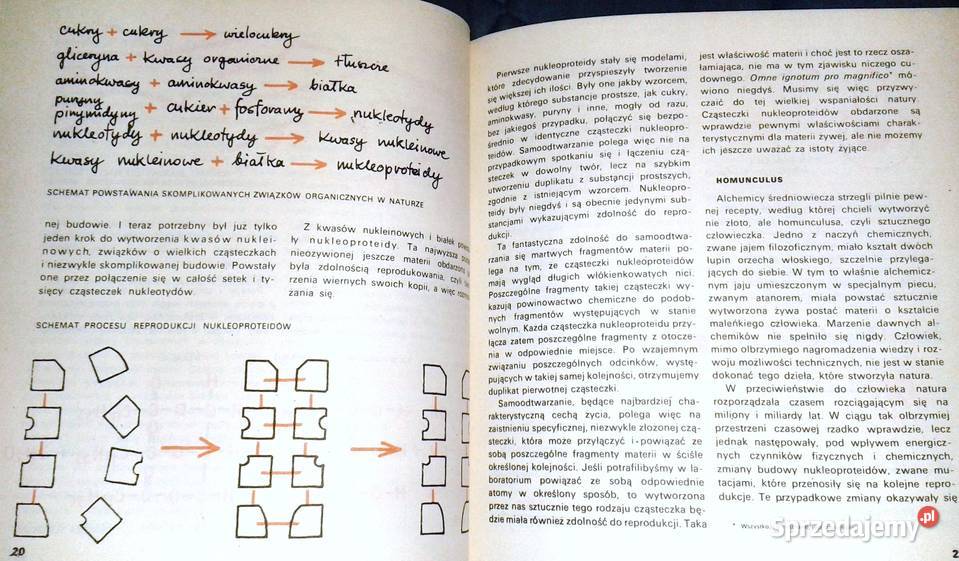 cukry + cukry → wielocukry
gliceryna + kwasy organiczne → tłuszcze
aminokwasy + aminokwasy → białka
puryny
pirymidyny + cukier + fosforany → nukleotydy
nukleotydy + nukleotydy → kwasy nukleinowe
kwasy nukleinowe + białka → nukleoproteidy
SCHEMAT POWSTAWANIA SKOMPLIKOWANYCH ZWIĄZKÓW ORGANICZNYCH W NATURZE
nej budowie. I teraz potrzebny był już tylko
jeden krok do wytworzenia kwasów nuklei-
nowych, związków o wielkich cząsteczkach
i niezwykle skomplikowanej budowie. Powstały
one przez połączenie się w całość setek i ty-
sięcy cząsteczek nukleotydów.
Z kwasów nukleinowych i białek
ły nukleoproteidy. Ta najwyższa
nieożywionej jeszcze materii obdarzona
była zdolnością reprodukowania, czyli
rzenia wiernych swoich kopii, a więc
zania się.
SCHEMAT PROCESU REPRODUKCJI NUKLEOPROTEIDÓW
20
Pierwsze nukleoproteidy stały się modelami,
które zdecydowanie przyspieszyły tworzenie
się większej ich ilości. Były one jakby wzorcem,
według którego substancje prostsze, jak cukry,
aminokwasy, puryny i inne, mogły od razu,
bez jakiegoś przypadku, połączyć się bezpo-
średnio w identyczne cząsteczki nukleopro-
teidów. Samoodtwarzanie polega więc nie na
przypadkowym spotkaniu się i łączeniu czą-
steczek w dowolny twór, lecz na szybkim
utworzeniu duplikatu z substancji prostszych,
zgodnie z istniejącym wzorcem. Nukleopro-
teidy były niegdyś i są obecnie jedynymi sub-
stancjami wykazującymi zdolność do repro-
dukcji.
Ta fantastyczna zdolność do samoodtwa-
rzania się martwych fragmentów materii po-
lega na tym, że cząsteczki nukleoproteidów
mają wygląd długich włókienkowatych nici.
Poszczególne fragmenty takiej cząsteczki wy-
kazują powinowactwo chemiczne do podob-
nych fragmentów występujących w stanie
wolnym. Każda cząsteczka nukleoproteidu przy-
łącza zatem poszczególne fragmenty z otocze-
nia w odpowiednie miejsce. Po wzajemnym
związaniu poszczególnych odcinków, wystę-
pujących w takiej samej kolejności, otrzymujemy
duplikat pierwotnej cząsteczki.
Samoodtwarzanie, będące najbardziej cha-
rakterystyczną cechą życia, polega więc na
zaistnieniu specyficznej, niezwykle złożonej czą-
steczki, która może przyłączyć i powiązać ze
sobą poszczególne fragmenty materii w ściśle
określonej kolejności. Jeśli potrafilibyśmy w la-
boratorium powiązać ze sobą odpowiednie
atomy w określony sposób, to wytworzona
przez nas sztucznie tego rodzaju cząsteczka bę-
dzie miała również zdolność do reprodukcji. Taka
jest właściwość materii i choć jest to rzecz osza-
łamiająca, nie ma w tym zjawisku niczego cu-
downego. Omne ignotum pro magnifico* mó-
wiono niegdyś. Musimy się więc przyzwy-
czaić do tej wielkiej wspaniałości natury.
Cząsteczki nukleoproteidów obdarzone są
wprawdzie pewnymi właściwościami charak-
terystycznymi dla materii żywej, ale nie możemy
ich jeszcze uważać za istoty żyjące.
HOMUNCULUS
Alchemicy średniowiecza strzegli pilnie pew-
nej recepty, według której chcieli wytworzyć
nie złoto, ale homunculusa, czyli sztucznego
człowieczka. Jedno z naczyń chemicznych,
zwane jajem filozoficznym, miało kształt dwóch
łupin orzecha włoskiego, szczelnie przylega-
jących do siebie. W tym to właśnie alchemicz-
nym jaju umieszczonym w specjalnym piecu,
zwanym atanorem, miała powstać sztucznie
wytworzona żywa postać materii o kształcie
maleńkiego człowieka. Marzenie dawnych al-
chemików nie spełniło się nigdy. Człowiek,
mimo olbrzymiego nagromadzenia wiedzy i roz-
woju możliwości technicznych, nie jest w stanie
dokonać tego dzieła, które stworzyła natura.
W przeciwieństwie do człowieka natura
rozporządzała czasem rozciągającym się na
miliony i miliardy lat. W ciągu tak olbrzymiej
przestrzeni czasowej rzadko wprawdzie, lecz
jednak następowały, pod wpływem energicz-
nych czynników fizycznych i chemicznych,
zmiany budowy nukleoproteidów, zwane mu-
tacjami, które przenosiły się na kolejne repro-
dukcje. Te przypadkowe zmiany okazywały się
* Wszystko,
2
Sprzedajemy.pl